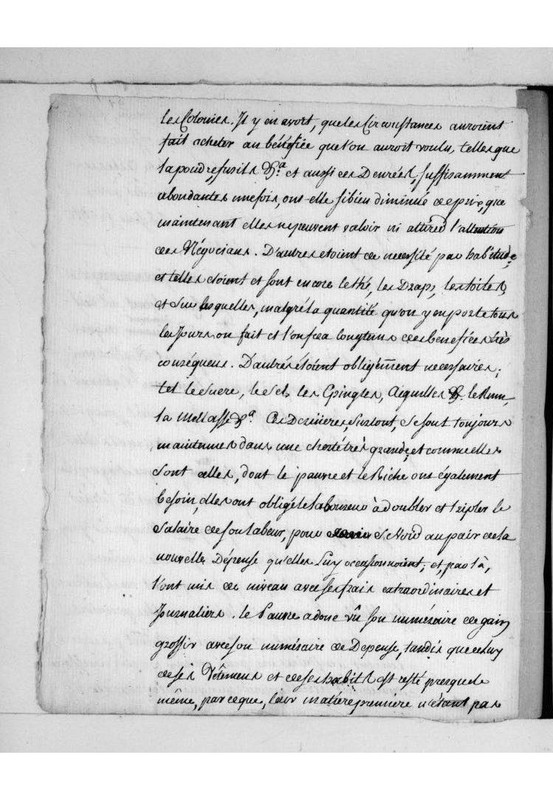 les Colonies. Il y en avoit, que les Circonstances auroient
fait acheter au bénéfice que l'on auroit voulu, telles que
la poudre, fusils &.a et aussi ces Denrées, suffisamment
abondantes une fois, ont elle si bien diminué de prix, que
maintenant elles ne peuvent valoir ni attirer l'attention
des Négocians. D'autres etoient de necessité par habitude,
et telles étoient et sont encore le thé, les Draps, les toiles,
et sur lesquelles, malgré la quantité qu'on y en porte tous
les Jours on fait et l'on fera longtems des benefices très
conséquens. D'autres étoient obligemment necessaires;
tel le Sucre, le Sel, les Epingles, Aiguilles &. le Rum,
la Mellasse &.a Ces Dernieres surtout, se sont toujours
maintenues dans une cherté très grande, et comme elles
sont celles, dont le pauvre et le Riche ont également
besoin, elles ont obligé le Laboureur à doubler et tripler le
Salaire de son labeur, pour se tenir au pair de la
nouvelle Dépense qu'elles luy occasionnoient; et, par là,
l'ont mis de niveau avec ses frais extraordinaires et
Journaliers. le Pauvre a donc vû son numéraire de gain
grossir avec son numéraire de Depense, tandis que celuy
de ses Vêtemens et de ses habits est resté presque le
même, parceque, leur matiere premiere n'étant pas